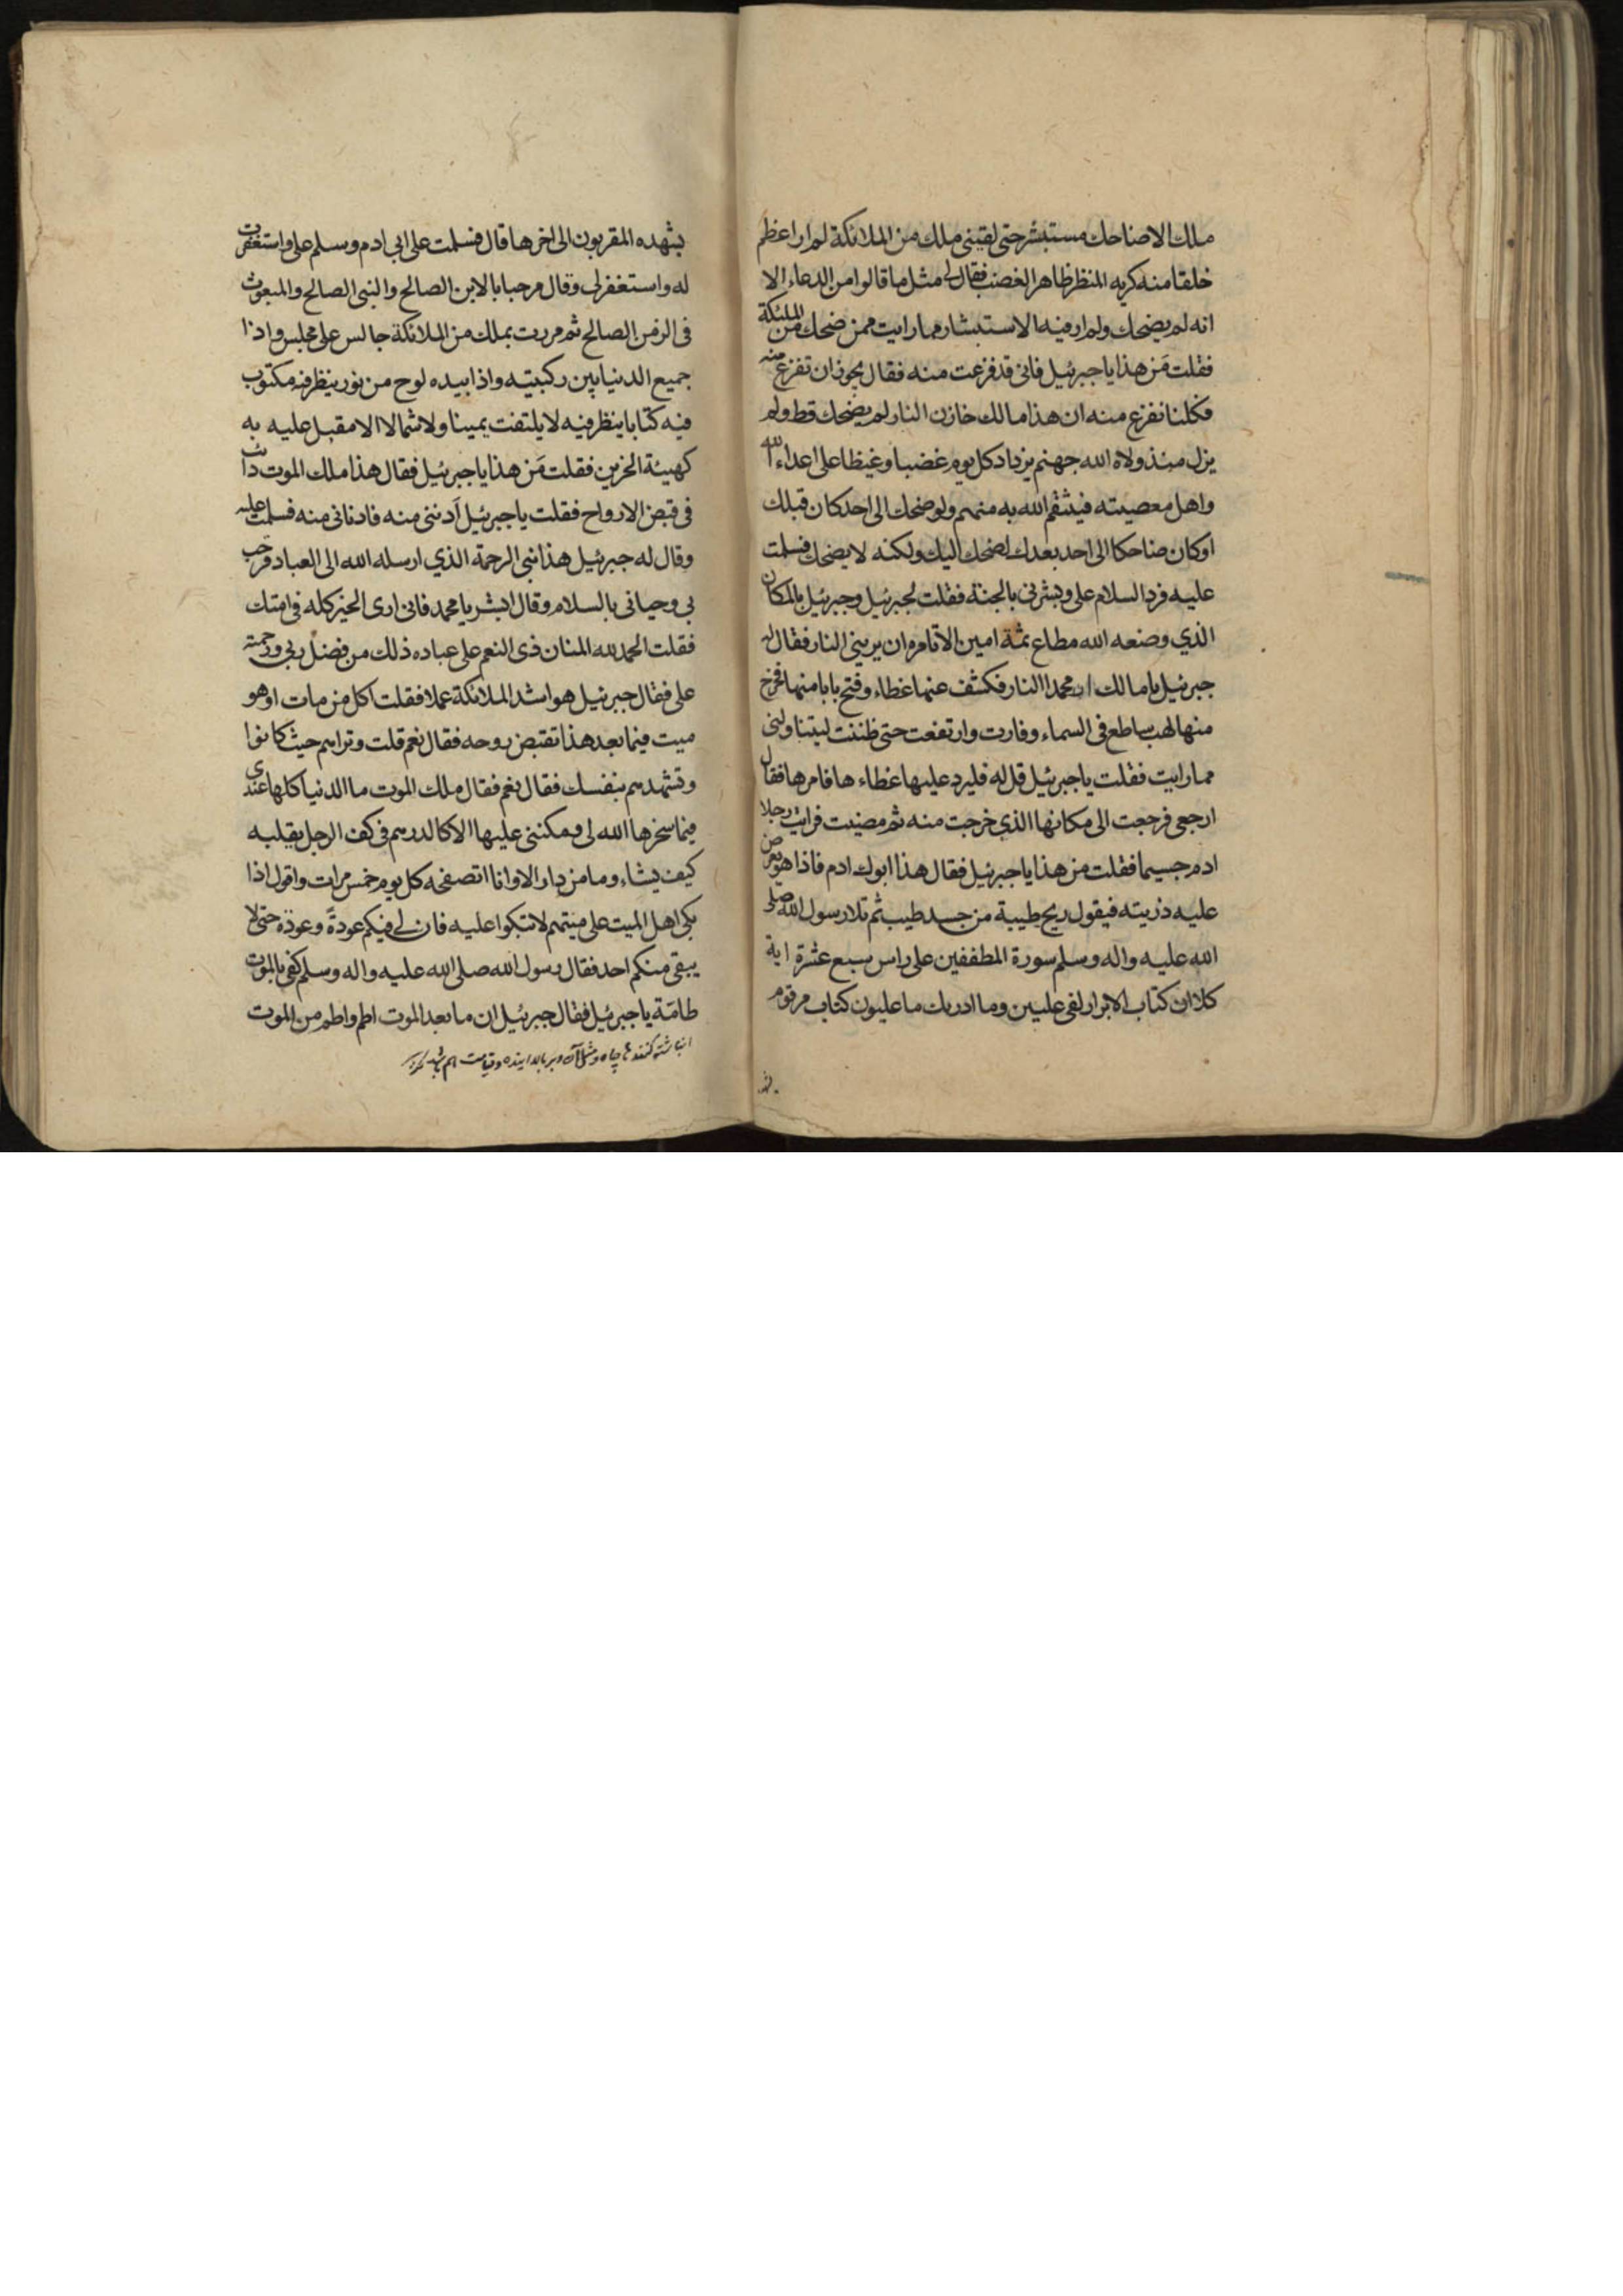 ملك الا ضاحك مستبشر حتى لقينى ملك من الملائكة لم ار اعظم
خلقا منه كريه المنظر ظاهر الغضب فقال لى مثل ما قالوا من الدعاء الا
انه لم يضحك ولم ار فيه الاستبشار مما رايت ممن ضحك من الملئكة
فقلت مَن هذا يا جبرئيل فانى قد فزعت منه فقال يجوز ان تفزع منه
فكلنا نفزع منه ان هذا مالك خازن النار لم يضحك قط ولم
يزل منذ ولاه الله جهنم يزداد كل يوم غضبا وغيظا على اعداء الله
واهل معصيته فينتقم الله به منهم ولو ضحك الى احد كان قبلك
او كان ضاحكا الى احد بعدك لضحك اليك ولكنه لا يضحك فسلمت
عليه فرد السلام على وبشرنى بالجنة فقلت لجبرئيل وجبرئيل بالمكان
الذي وضعه الله مطاع ثمة امين الا تامره ان يرينى النار فقال له
جبرئيل يا مالك ار محمدا النار فكشف عنها غطاء وفتح بابا منها فخرج
منها لهب ساطع فى السماء وفارت وارتفعت حتى ظننت ليتناولنى
مما رايت فقلت يا جبرئيل قل له فليرد عليها غطاءها فامرها فقال
ارجعى فرجعت الى مكانها الذي خرجت منه ثم مضيت فرايت رجلا
ادم جسيما فقلت من هذا يا جبرئيل فقال هذا ابوك ادم فاذا هو يعرض
عليه ذريته فيقول ريح طيبة من جسد طيب ثم تلا رسول الله صلى
الله عليه واله وسلم سورة المطففين على راس سبع عشرة اية
كلا ان كتاب الابرار لفى عليين وما ادريك ما عليون كتاب مرقوم
يشهده المقربون الى اخرها قال فسلمت على ابى ادم وسلم على واستغفرت
له واستغفر لى وقال مرحبا بالابن الصالح والنبى الصالح والمبعوث
فى الزمن الصالح ثم مررت بملك من الملائكة جالس على مجلس واذا
جميع الدنيا بين ركبتيه واذا بيده لوح من نور ينظر فيه مكتوب
فيه كتابا ينظر فيه لا يلتفت يمينا ولا شمالا الا مقبل عليه به
كهيئة الحزين فقلت مَن هذا يا جبرئيل فقال هذا ملك الموت دائب
فى قبض الارواح فقلت يا جبرئيل اَدننى منه فادنانى منه فسلمت عليه
وقال له جبرئيل هذا نبى الرحمة الذي ارسله الله الى العباد فرحب
بى وحيانى بالسلام وقال ابشر يا محمد فانى ارى الخير كله فى امتك
فقلت الحمد لله المنان ذى النعم على عباده ذلك من فضل ربى ورحمته
على فقال جبرئيل هو اشد الملائكة عملا فقلت اكل من مات او هو
ميت فيما بعد هذا تقبض روحه فقال نعم قلت وتراهم حيث كانوا
وتشهدهم بنفسك فقال نعم فقال ملك الموت ما الدنيا كلها عندى
فيما سخرها الله لى ومكننى عليها الا كالدرهم فى كف الرجل يقلبه
كيف يشاء وما من دار الا وانا اتصفحه كل يوم خمس مرات واقول اذا
بكى اهل الميت على ميتهم لا تبكوا عليه فان لى فيكم عودةً وعودة حتى لا
يبقى منكم احد فقال رسول الله صلى الله عليه واله وسلم كفى بالموت
طامّة يا جبرئيل فقال جبرئيل ان ما بعد الموت اطم واطم من الموت